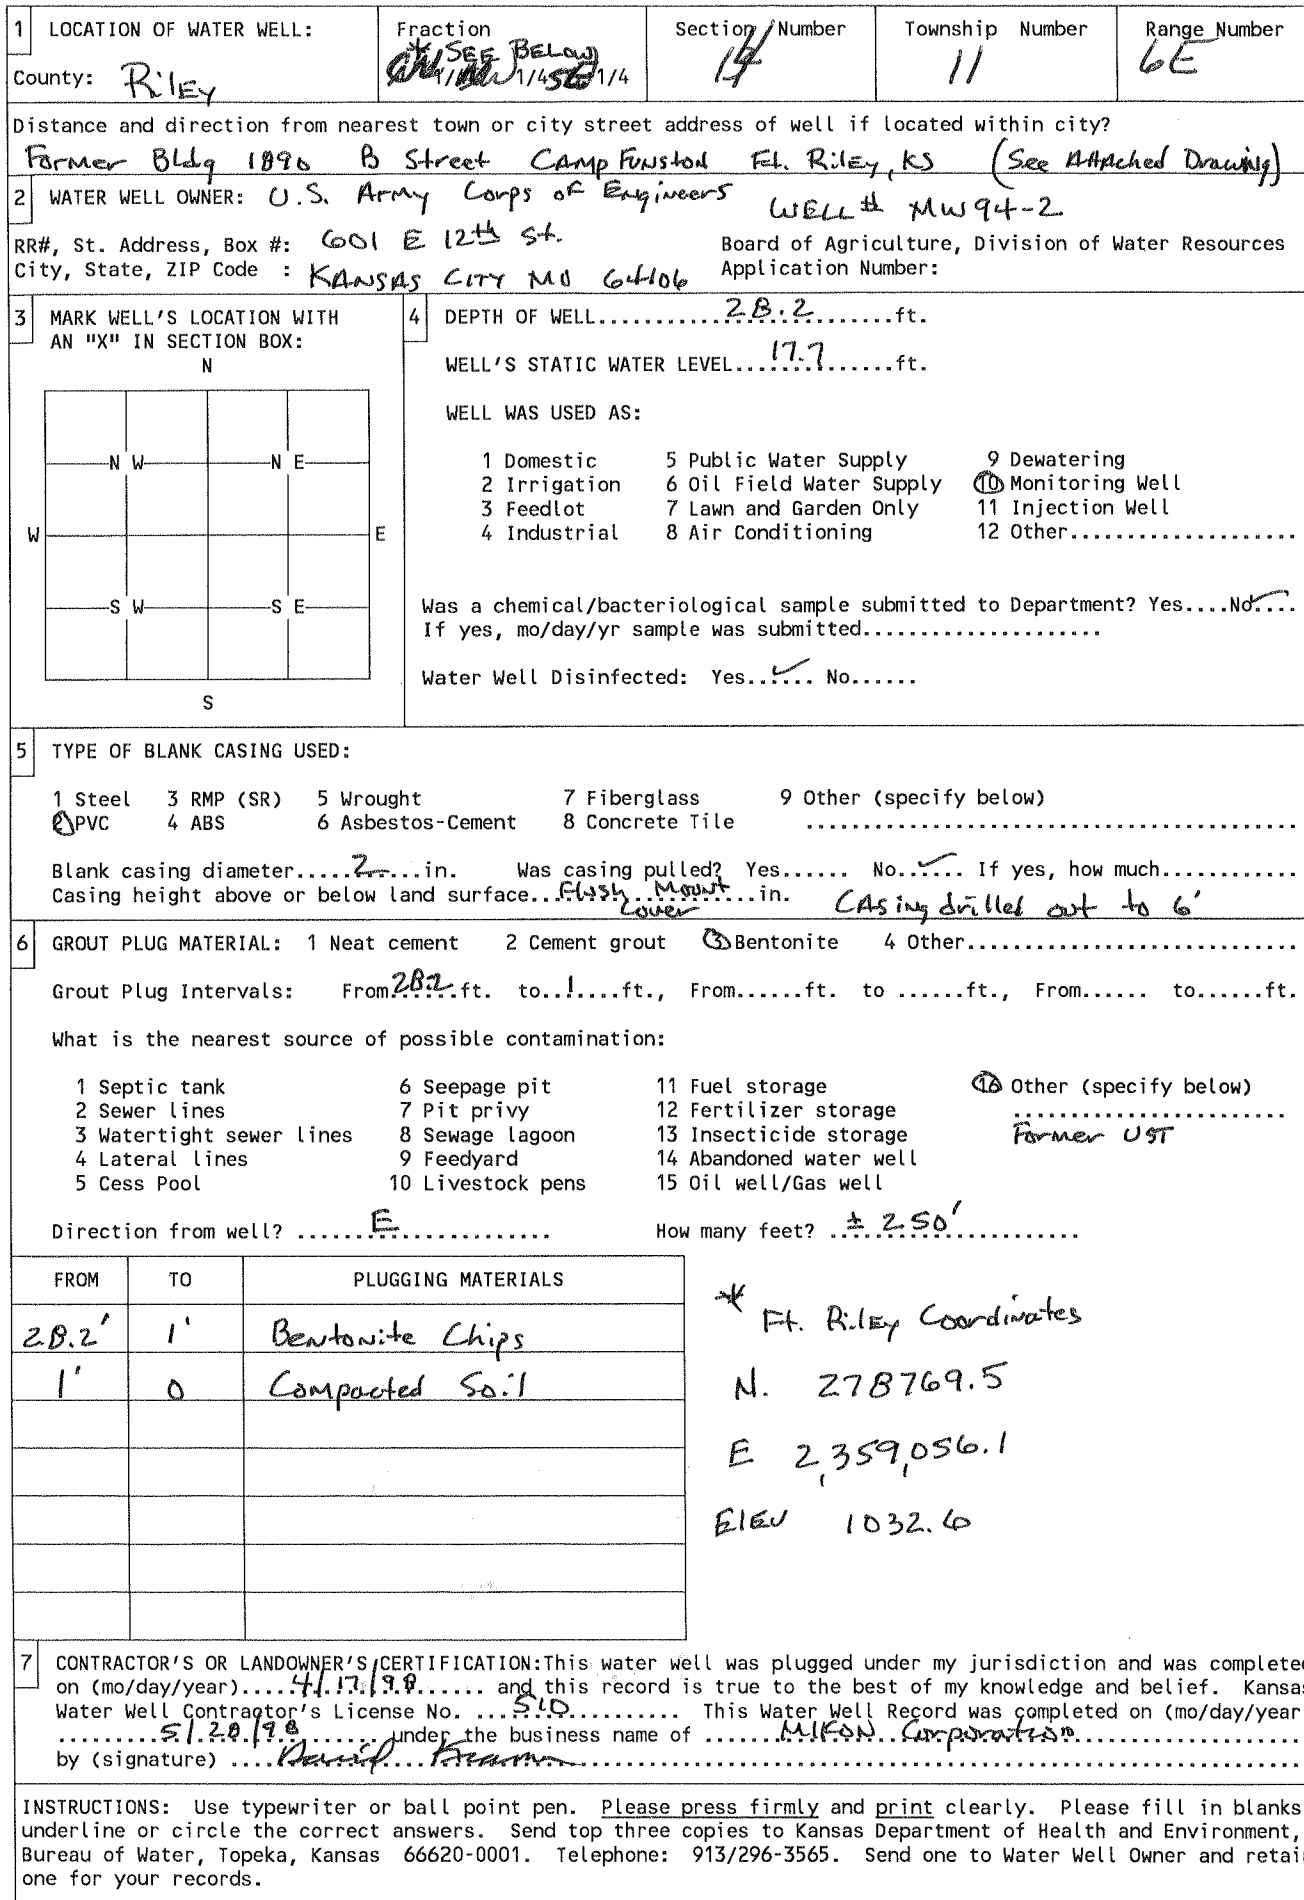 1 LOCATION OF WATER WELL: Fraction Section Number Township Number Range Number
* SEE BELOW
County: Riley 1/4 1/4 1/4 11 6E
Distance and direction from nearest town or city street address of well if located within city?
Former Bldg 1890 B Street Camp Funston Ft. Riley, KS (See Attached Drawing)
2 WATER WELL OWNER: U.S. Army Corps of Engineers WELL # MW94-2
RR#, St. Address, Box #: 601 E 12th St. Board of Agriculture, Division of Water Resources
City, State, ZIP Code : KANSAS CITY MO 64106 Application Number:
3 MARK WELL'S LOCATION WITH AN "X" IN SECTION BOX:
N
N W N E
W E
S W S E
S
4 DEPTH OF WELL...........28.2........ft.
WELL'S STATIC WATER LEVEL....17.7......ft.
WELL WAS USED AS:
1 Domestic 5 Public Water Supply 9 Dewatering
2 Irrigation 6 Oil Field Water Supply 10 Monitoring Well
3 Feedlot 7 Lawn and Garden Only 11 Injection Well
4 Industrial 8 Air Conditioning 12 Other...................
Was a chemical/bacteriological sample submitted to Department? Yes....No✓....
If yes, mo/day/yr sample was submitted.....................
Water Well Disinfected: Yes..✓... No......
5 TYPE OF BLANK CASING USED:
1 Steel 3 RMP (SR) 5 Wrought 7 Fiberglass 9 Other (specify below)
2 PVC 4 ABS 6 Asbestos-Cement 8 Concrete Tile ..........................................
Blank casing diameter.....2.....in. Was casing pulled? Yes...... No..✓.. If yes, how much............
Casing height above or below land surface...Flush Mount Cover...in. Casing drilled out to 6'
6 GROUT PLUG MATERIAL: 1 Neat cement 2 Cement grout 3 Bentonite 4 Other............................
Grout Plug Intervals: From 28.2 ft. to..1....ft., From......ft. to ......ft., From...... to......ft.
What is the nearest source of possible contamination:
1 Septic tank 6 Seepage pit 11 Fuel storage 16 Other (specify below)
2 Sewer lines 7 Pit privy 12 Fertilizer storage .......................
3 Watertight sewer lines 8 Sewage lagoon 13 Insecticide storage Former UST
4 Lateral lines 9 Feedyard 14 Abandoned water well
5 Cess Pool 10 Livestock pens 15 Oil well/Gas well
Direction from well? ......E............... How many feet? ± 250'
FROM TO PLUGGING MATERIALS
28.2' 1' Bentonite Chips
1' 0 Compacted Soil
* Ft. Riley Coordinates
N. 278769.5
E 2,359,056.1
Elev 1032.6
7 CONTRACTOR'S OR LANDOWNER'S CERTIFICATION:This water well was plugged under my jurisdiction and was completed
on (mo/day/year).....4/17/98....... and this record is true to the best of my knowledge and belief. Kansas
Water Well Contractor's License No. ...510.......... This Water Well Record was completed on (mo/day/year
.........5/28/98........ under the business name of ......MIKON Corporation....................
by (signature) ....David
INSTRUCTIONS: Use typewriter or ball point pen. Please press firmly and print clearly. Please fill in blanks
underline or circle the correct answers. Send top three copies to Kansas Department of Health and Environment,
Bureau of Water, Topeka, Kansas 66620-0001. Telephone: 913/296-3565. Send one to Water Well Owner and retai
one for your records.